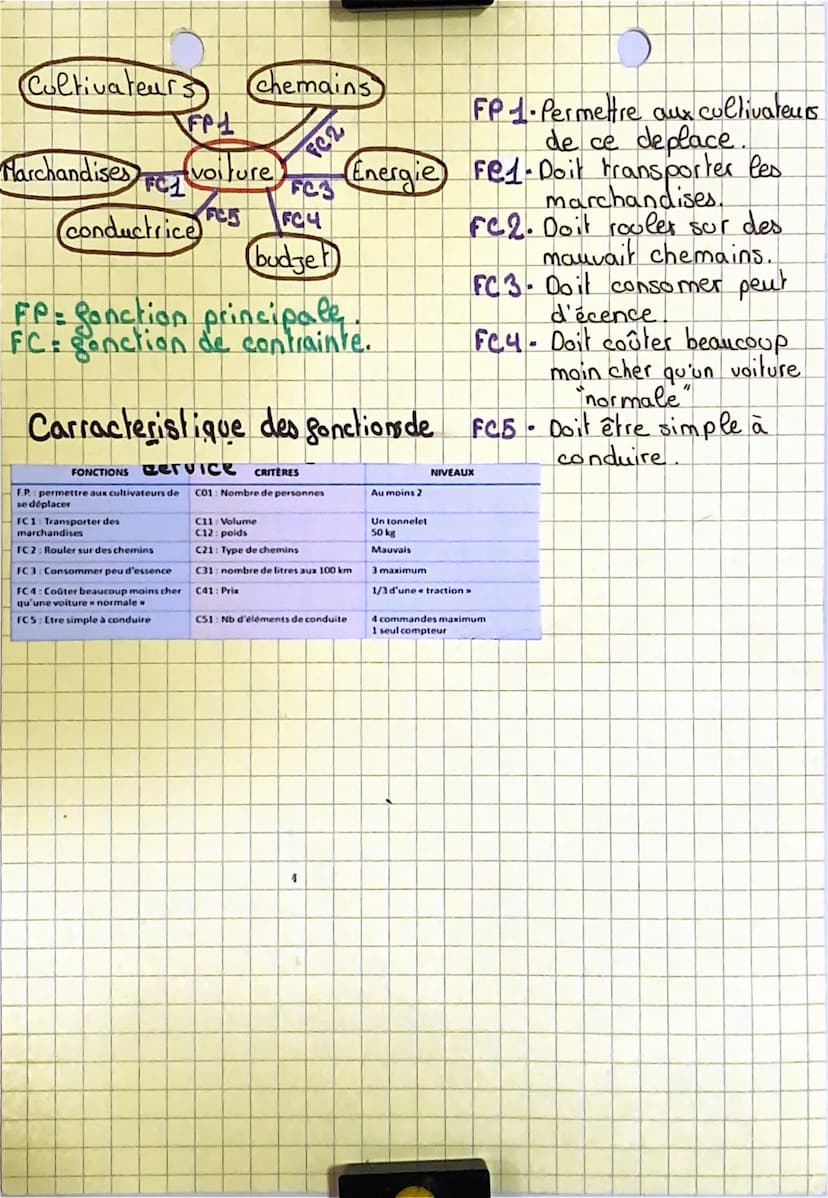 Cultivateurs
chemains
FP1
FC2
Marchandises
FC1
voiture
FC3
Energie
conductrice
FC5
FC4
budget
FP = fonction principale.
FC = fonction de contrainte.
FP1. Permettre aux cultivateurs
de ce deplace.
FC1. Doit transporter les
marchandises.
FC2. Doit rouler sur des
mauvait chemains.
FC3. Doit consomer peut
d'écence.
FC4. Doit coûter beaucoup
moin cher qu'un voiture
"normale"
FC5. Doit être simple à
conduire.
Carracteristique des fonctions de
service
FONCTIONS CRITÈRES NIVEAUX
F.P. : permettre aux cultivateurs de C01 : Nombre de personnes Au moins 2
se déplacer
FC 1 : Transporter des C11 : Volume Un tonnelet
marchandises C12 : poids 50 kg
FC 2 : Rouler sur des chemins C21 : Type de chemins Mauvais
FC 3 : Consommer peu d'essence C31 : nombre de litres aux 100 km 3 maximum
FC 4 : Coûter beaucoup moins cher C41 : Prix 1/3 d'une « traction »
qu'une voiture « normale »
FC 5 : Etre simple à conduire C51 : Nb d'éléments de conduite 4 commandes maximum
1 seul compteur